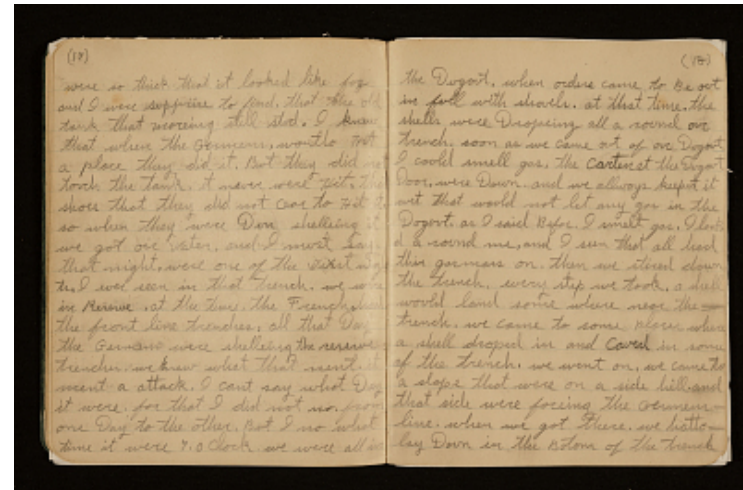 (17)
were so thick that it looked like fog
and I were supprise to find. that the old
tank that morning still stod. I know
that when the Germens, wonto hit
a place they did it. But they did not
toock the tank. it never were hit, the
shoes that they did not car to hit it
so when they were Dun shelleing it
we got our water. and I most say
that night, were one of the
I ever seen in that trench. we were
in Reserve. at the time. the French had
the front line trenches. all that Day
the Germans were shelleing the reserve
trenches. we knew what that ment. it
ment a attack. I cant say what Day
it were. for that I did not no. from
one Day to the other. But I no what
time it were 7.0 Clock. we were all in
(18)
the Dogout. when orders came to Be out
in full with shovels. at that time. the
shells were Dropeing all a round our
trench. soon as we came out of our Dogout
I coold smell gas. the Carten at the Dogout
Door. were Down. and we allways keept it
wet that would not let any gas in the
Dogout. as I said Befor. I smelt gas. I look
d a round me, and I seen that all had
thir gasmass on. then we stired down
the trench. every step we took. a shell
would land some where near the
trench. we came to some place where
a shell droped in and Caved in some
of the trench. we went on. we came to
a slope that were on a side hill. and
that side were foceing the Germens
line. when we got there. we hatto
lay Down in the Botom of the trench